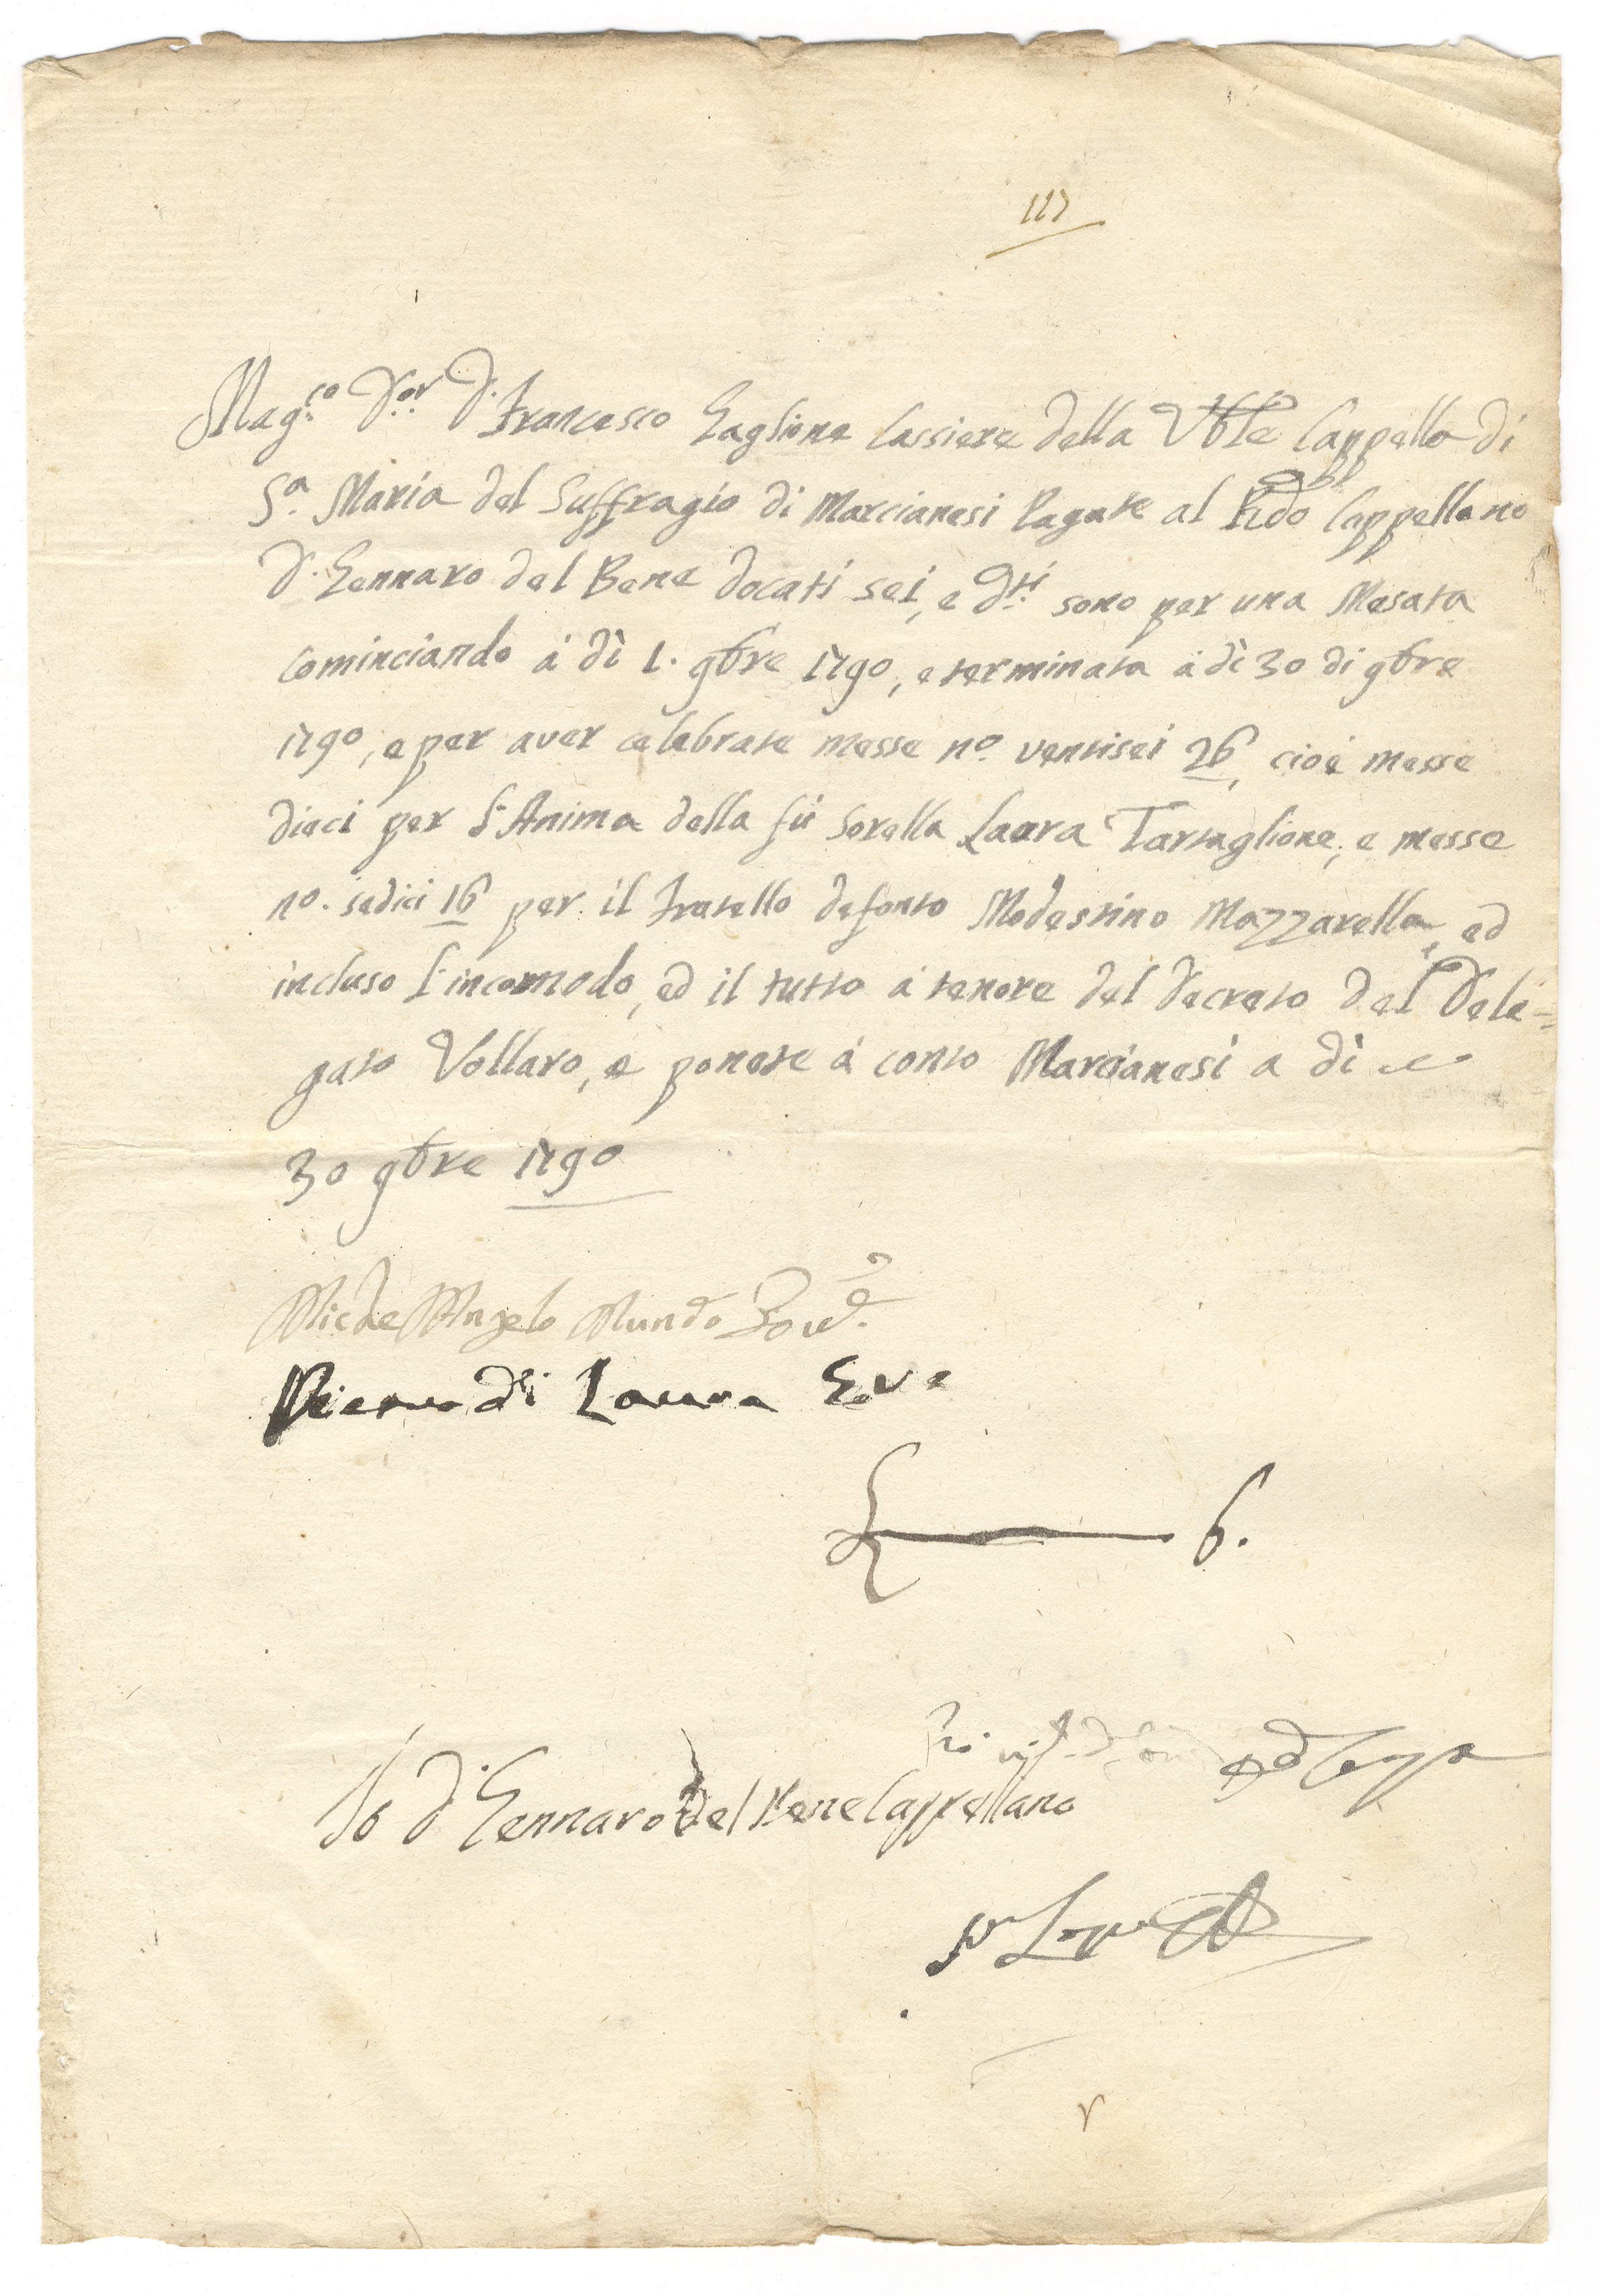 117
Mag.co D.or D. Francesco Gaglione Cassiere della Vble Cappella di
S.a Maria del Suffragio di Marcianesi Pagate al Rdo Cappellano
D. Gennaro del Bene docati sei, e d.ti sono per una Mesata
cominciando á dì 1. 9bre 1790, e terminata á dì 30 di 9bre
1790, e per aver celebrate messe no. ventisei 26, cioé messe
dieci per l'Anima della fù Sorella Laura Tartaglione, e messe
no. sedici 16 per il Fratello defonto Modestino Mazzarella, ed
incluso l'incomodo, ed il tutto á tenore del decreto del Dele-
gato Vollaro, e ponete á conto Marcianesi a dì
30 9bre 1790
Michel Angelo Mundo
di Laura
6.
Io D. Gennaro del Bene Cappellano